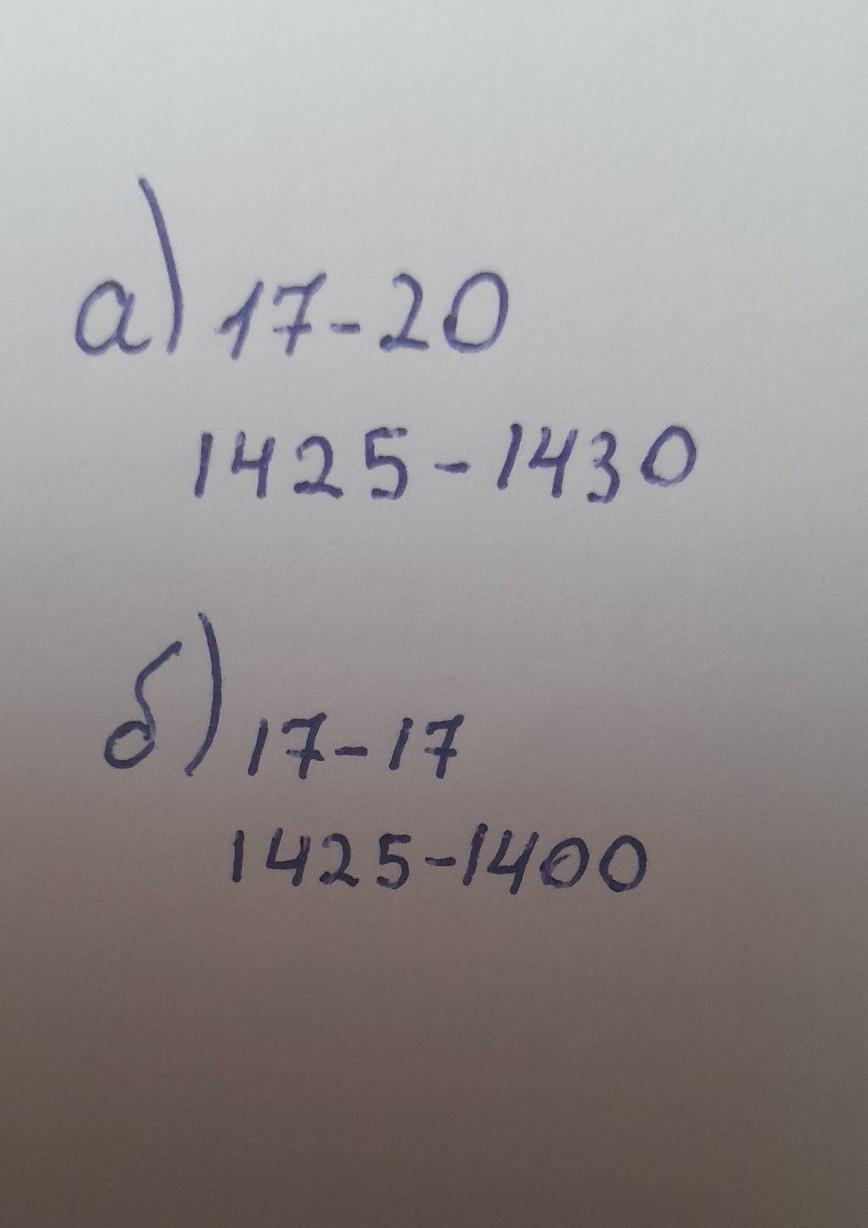 а) 17-20
1425-1430
б) 17-17
1425-1400